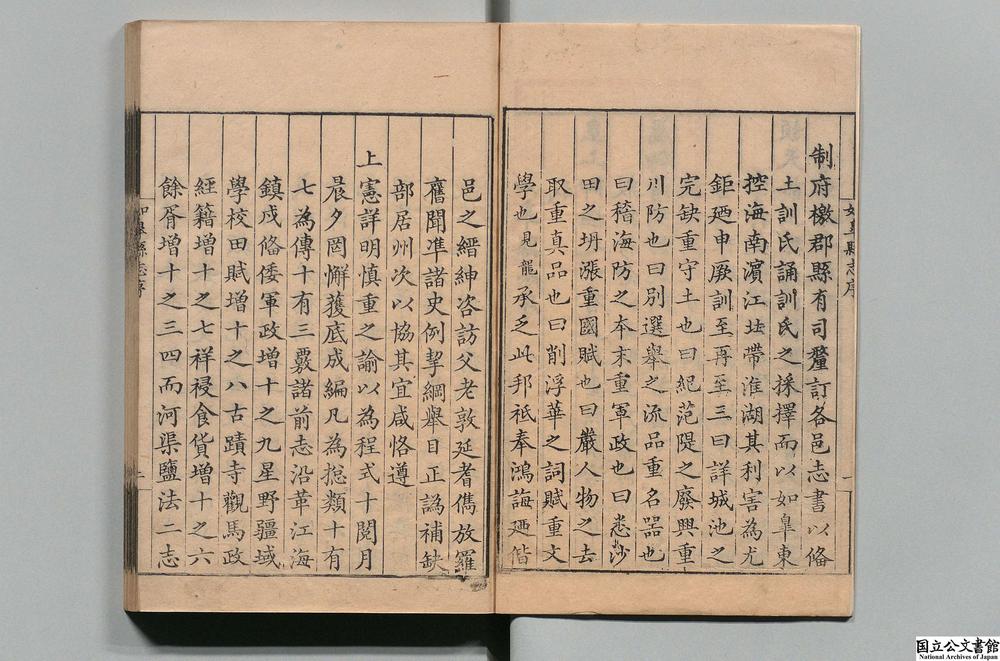 制府檄郡縣有司釐訂各邑志書以俻
土訓氏誦訓氏之採擇而以如臯東
控海南濵江北帶淮湖其利害為尤
鉅廼申厥訓至再至三曰詳城池之
完缺重守土也曰紀范隄之廢興重
川防也曰别選舉之流品重名噐也
曰稽海防之夲末重軍政也曰悉沙
田之坍漲重國賦也曰嚴人物之去
取重真品也曰削浮華之詞賦重文
學也見龍承乏此邦祗奉鴻誨廼偕
如臯縣志序
一
邑之縉紳咨訪父老敦延耆儁放羅
舊聞凖諸史例挈綱舉目正譌補缺
部居州次以協其宜咸恪遵
上憲詳明慎重之諭以為程式十閱月
晨夕罔懈獲底成編凡為揔類十有
七為傳十有三覈諸前志沿革江海
鎮戍俻倭軍政增十之九星野疆域
學校田賦增十之八古蹟寺觀馬政
經籍增十之七祥祲食貨增十之六
餘胥增十之三四而河渠鹽法二志
如臯縣志序
二
国立公文書館
National Archives of Japan